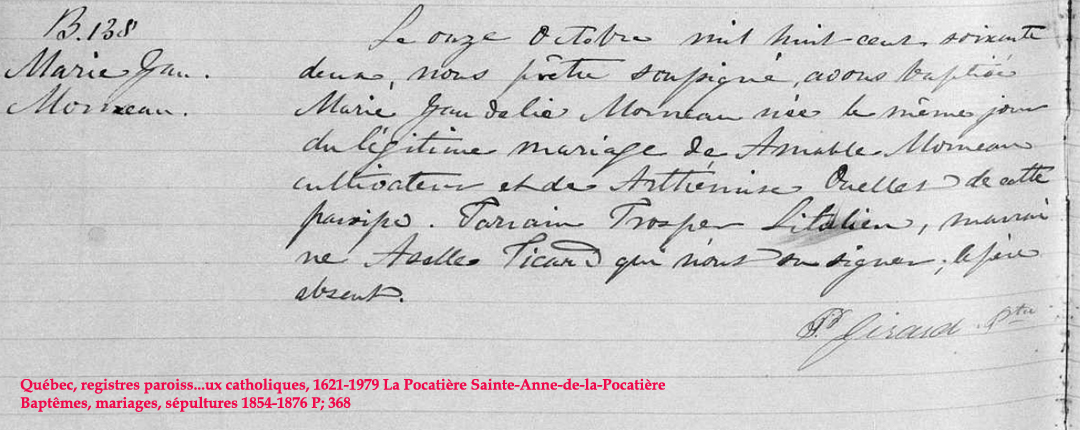 B.138
Marie Jau.
Morneau.
Le onze Octobre mil huit-cent soixante
deux, nous prêtre soussigné, avons baptisé
Marie Jaudelie Morneau née le même jour
du légitime mariage de Amable Morneau
cultivateur et de Arthémise Ouellet de cette
paroisse. Parrain Prosper Litalien, marrai
ne Aselle Picard qui n'ont su signer; le père
absent.
Girard Ptre
Québec, registres paroiss...ux catholiques, 1621-1979 La Pocatière Sainte-Anne-de-la-Pocatière
Baptêmes, mariages, sépultures 1854-1876 P; 368